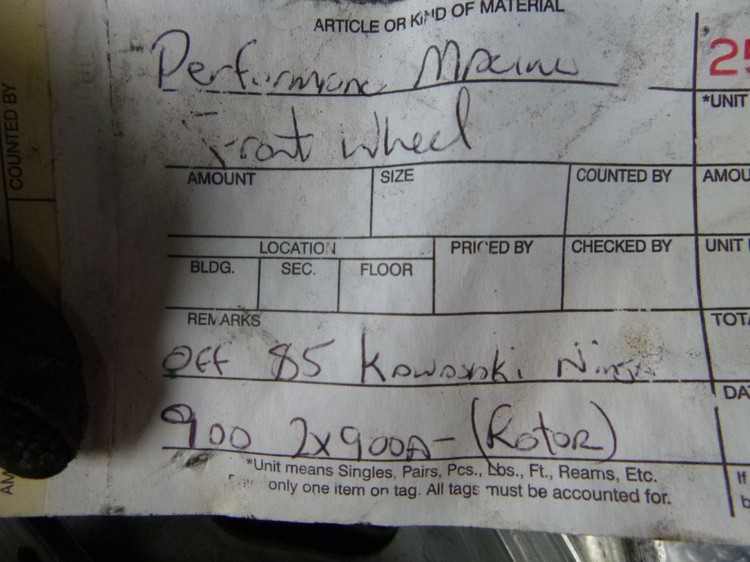 ARTICLE OR KIND OF MATERIAL
Performanc Machine
25
*UNIT
Front Wheel
COUNTED BY
AMOUNT SIZE COUNTED BY AMOU
LOCATION PRICED BY CHECKED BY UNIT
BLDG. SEC. FLOOR
REMARKS TOTA
Off 85 Kawasaki Ninja
DA
900 2x900A- (Rotor)
*Unit means Singles, Pairs, Pcs., Lbs., Ft., Reams, Etc.
only one item on tag. All tags must be accounted for.
If
b
AM